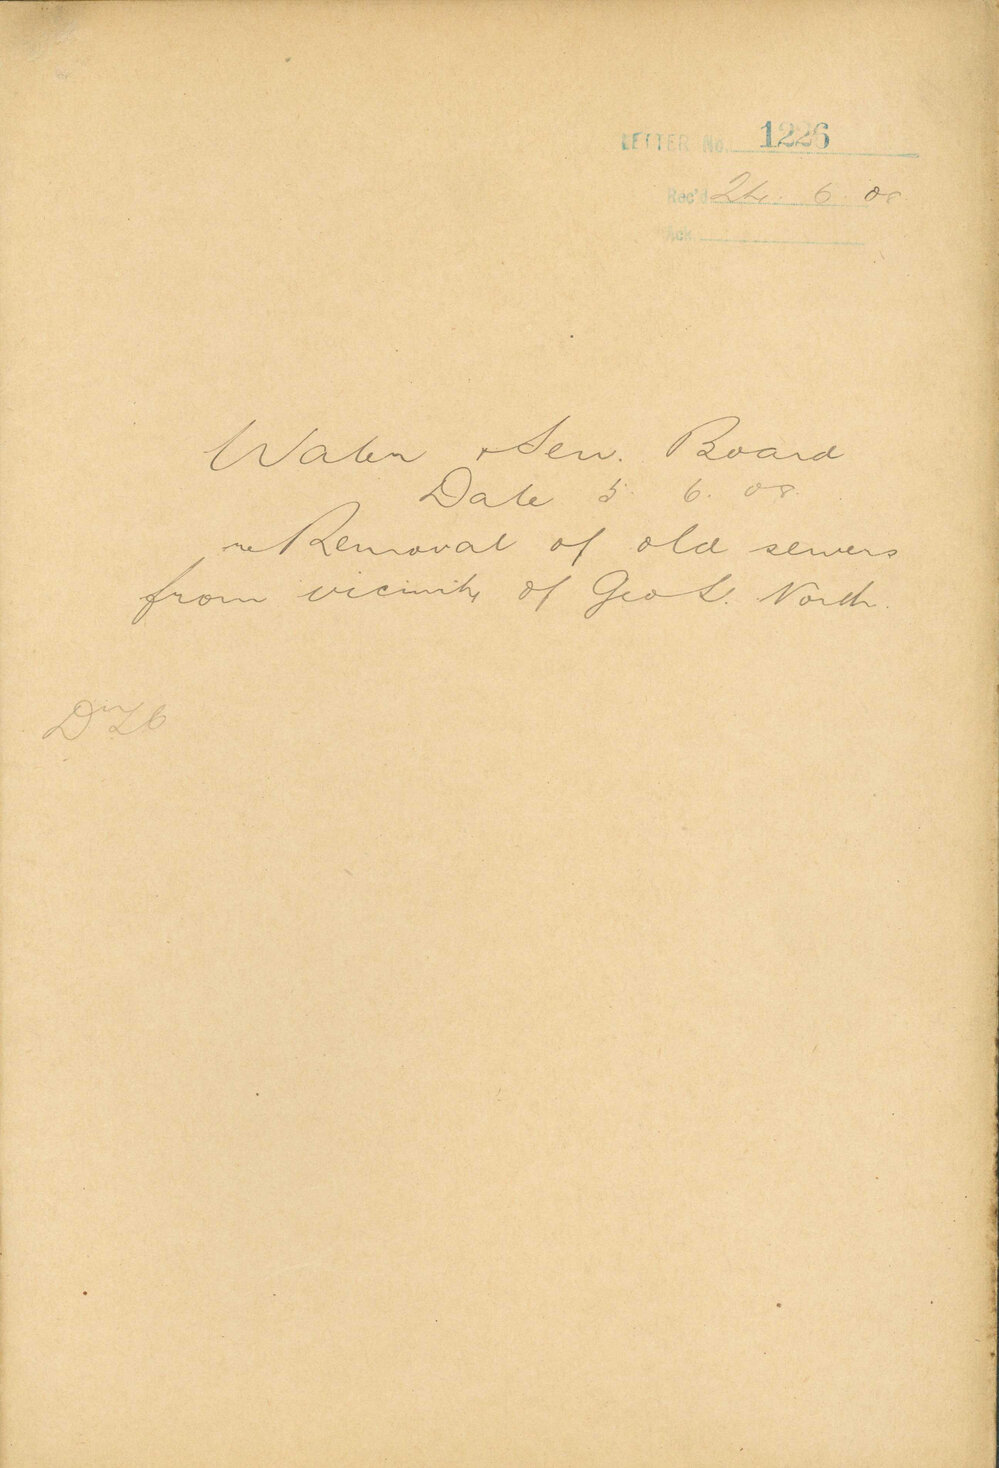 LETTER No. 1226
Rec'd 24. 6. 08
Ack
Water & Sew. Board
Date 5. 6. 08.
re Removal of old sewers
from vicinity of Geo St. North.